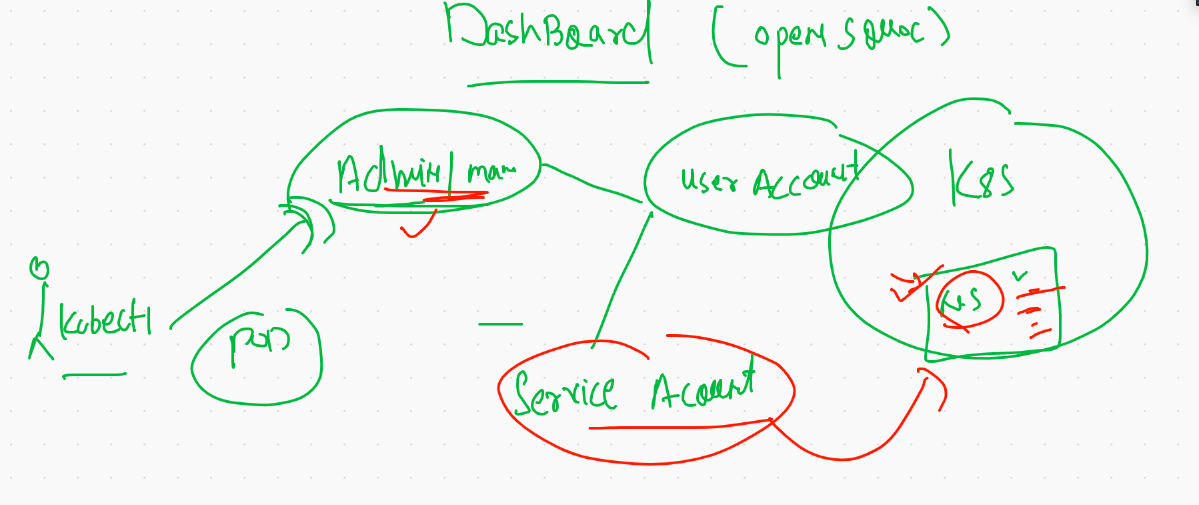 DashBoard (open source)
Admin/man
user Account
K8S
kubectl
POD
K8S
Service Acount